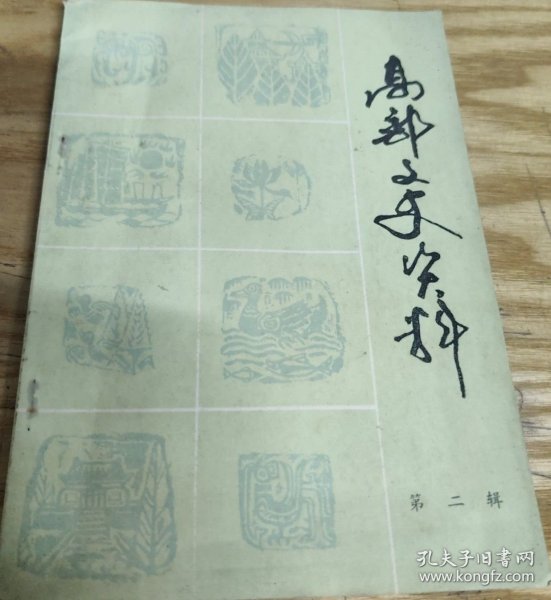 高邮文史资料
第二辑
孔夫子旧书网
www.kongfz.com